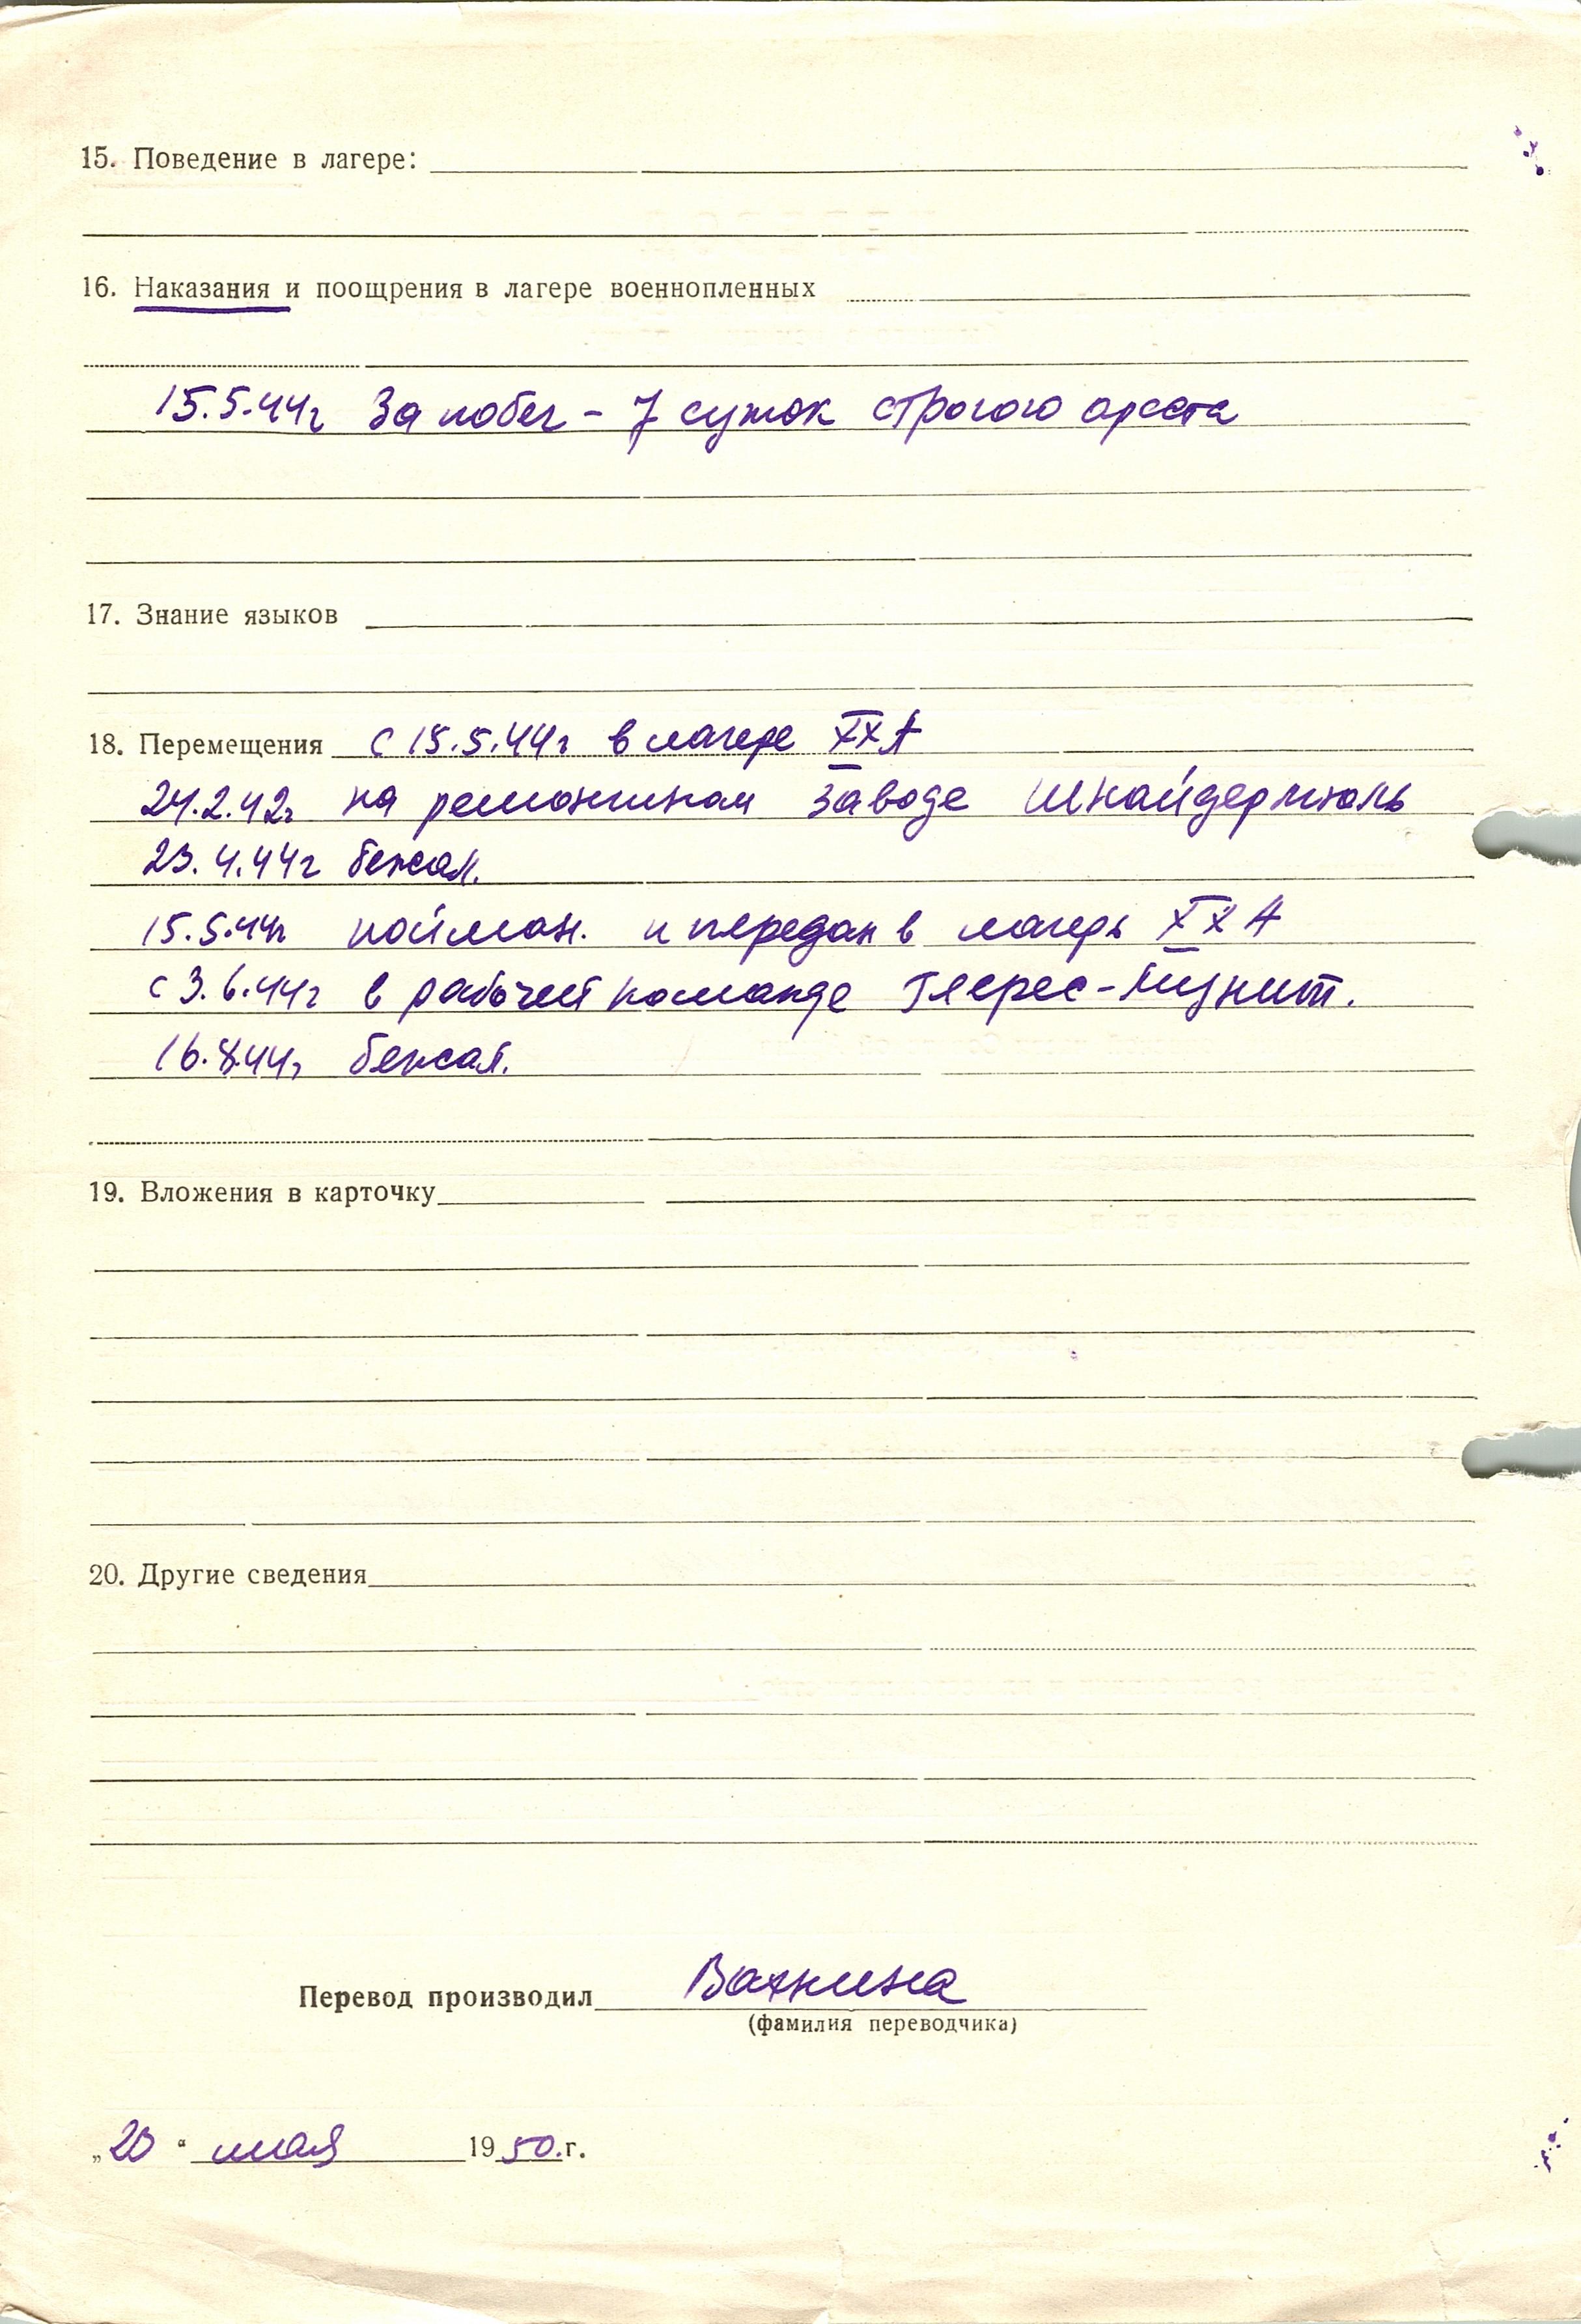 15. Поведение в лагере:
16. Наказания и поощрения в лагере военнопленных
15.5.44г За побег - 7 суток строгого ареста
17. Знание языков
18. Перемещения с 15.5.44г в лагере XXA
24.2.42г на ремонтном заводе Шнайдермюль
23.4.44г бежал.
15.5.44г пойман. и передан в лагерь XXA
с 3.6.44г в рабочей команде
16.8.44г бежал.
19. Вложения в карточку
20. Другие сведения
Перевод производил Вахнина
(фамилия переводчика)
„20“ мая 1950.г.